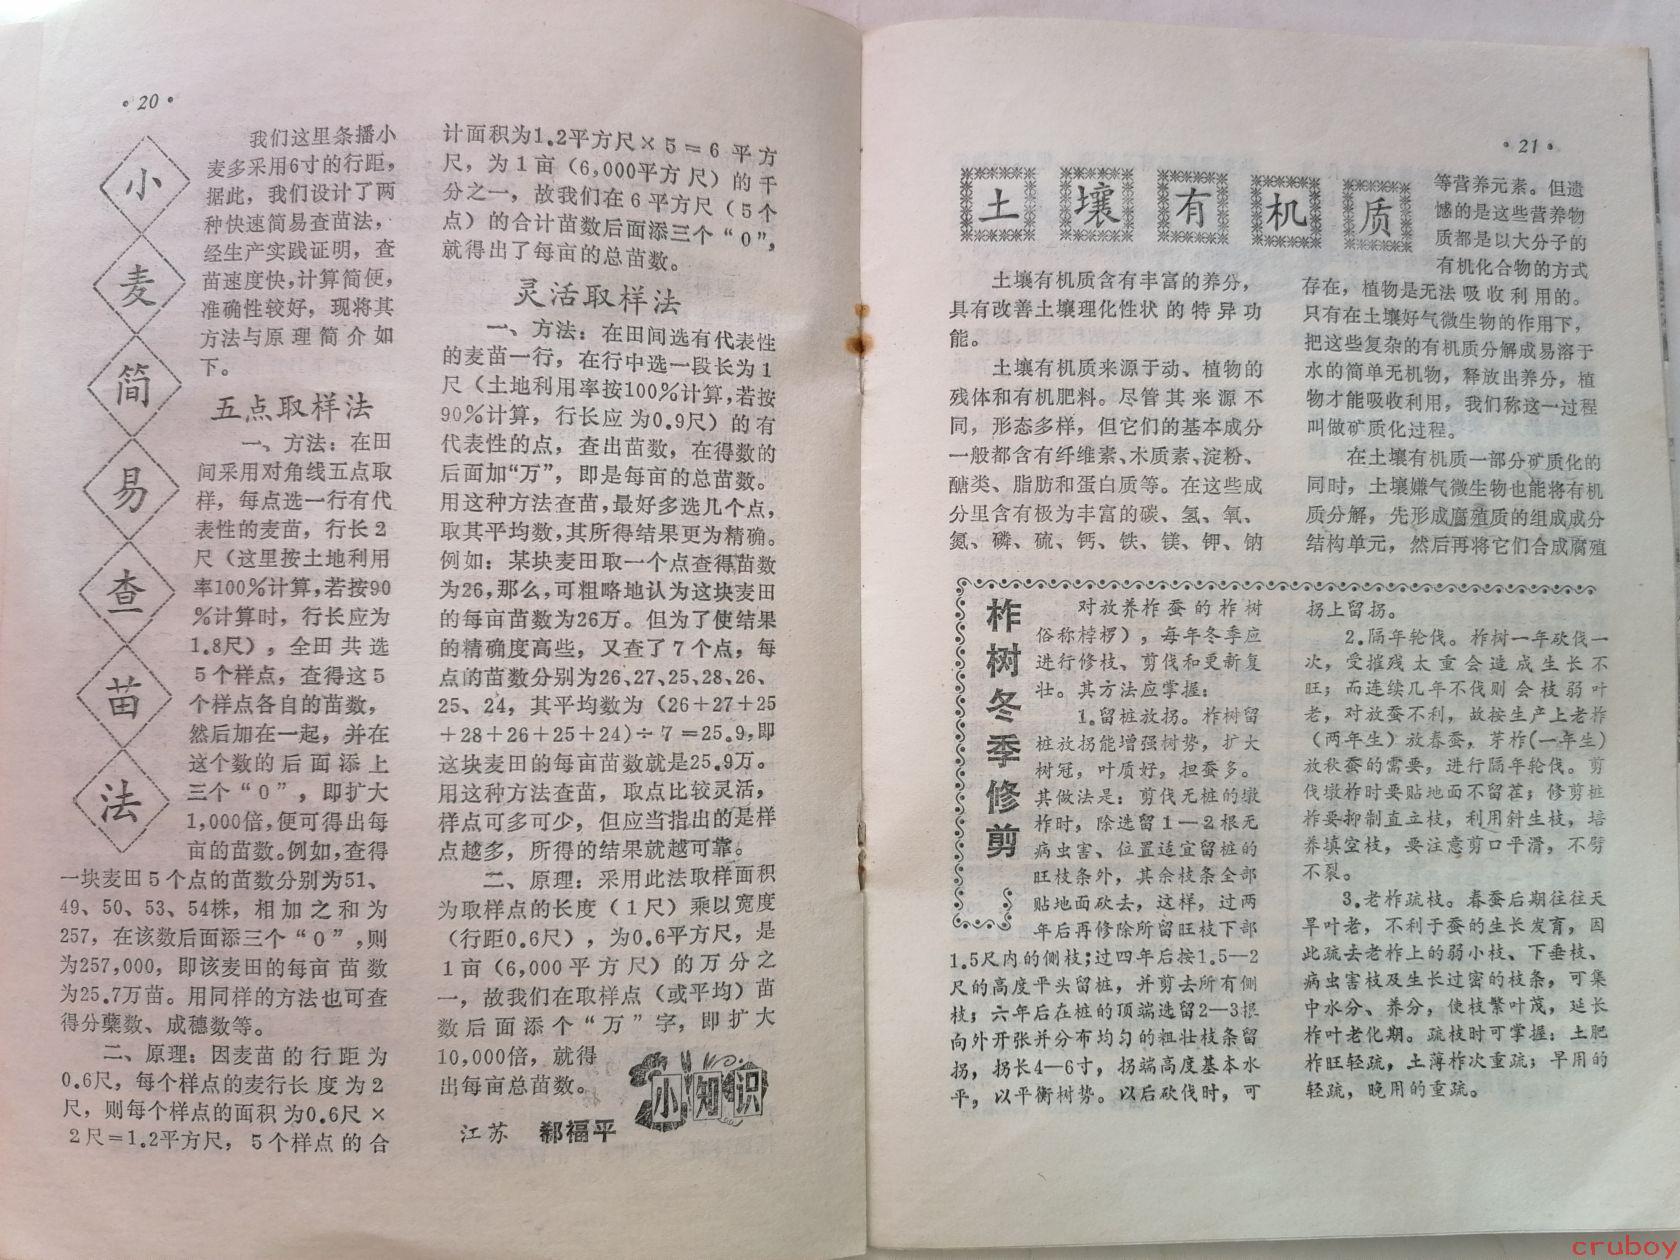 ·20·
小麦简易查苗法
我们这里条播小
麦多采用6寸的行距，
据此，我们设计了两
种快速简易查苗法，
经生产实践证明，查
苗速度快，计算简便，
准确性较好，现将其
方法与原理简介如
下。
五点取样法
一、方法：在田
间采用对角线五点取
样，每点选一行有代
表性的麦苗，行长2
尺（这里按土地利用
率100%计算，若按90
%计算时，行长应为
1.8尺），全田共选
5个样点，查得这5
个样点各自的苗数，
然后加在一起，并在
这个数的后面添上
三个“0”，即扩大
1,000倍，便可得出每
亩的苗数。例如，查得
一块麦田5个点的苗数分别为51、
49、50、53、54株，相加之和为
257，在该数后面添三个“0”，则
为257,000，即该麦田的每亩苗数
为25.7万苗。用同样的方法也可查
得分蘖数、成穗数等。
二、原理：因麦苗的行距为
0.6尺，每个样点的麦行长度为2
尺，则每个样点的面积为0.6尺×
2尺＝1.2平方尺，5个样点的合
计面积为1.2平方尺×5＝6平方
尺，为1亩（6,000平方尺）的千
分之一，故我们在6平方尺（5个
点）的合计苗数后面添三个“0”，
就得出了每亩的总苗数。
灵活取样法
一、方法：在田间选有代表性
的麦苗一行，在行中选一段长为1
尺（土地利用率按100%计算，若按
90%计算，行长应为0.9尺）的有
代表性的点，查出苗数，在得数的
后面加“万”，即是每亩的总苗数。
用这种方法查苗，最好多选几个点，
取其平均数，其所得结果更为精确。
例如：某块麦田取一个点查得苗数
为26，那么，可粗略地认为这块麦田
的每亩苗数为26万。但为了使结果
的精确度高些，又查了7个点，每
点的苗数分别为26、27、25、28、26、
25、24，其平均数为（26＋27＋25
＋28＋26＋25＋24）÷7＝25.9，即
这块麦田的每亩苗数就是25.9万。
用这种方法查苗，取点比较灵活，
样点可多可少，但应当指出的是样
点越多，所得的结果就越可靠。
二、原理：采用此法取样面积
为取样点的长度（1尺）乘以宽度
（行距0.6尺），为0.6平方尺，是
1亩（6,000平方尺）的万分之
一，故我们在取样点（或平均）苗
数后面添个“万”字，即扩大
10,000倍，就得
出每亩总苗数。
小知识
江苏 郝福平
·21·
土壤有机质
土壤有机质含有丰富的养分，
具有改善土壤理化性状的特异功
能。
土壤有机质来源于动、植物的
残体和有机肥料。尽管其来源不
同，形态多样，但它们的基本成分
一般都含有纤维素、木质素、淀粉、
醣类、脂肪和蛋白质等。在这些成
分里含有极为丰富的碳、氢、氧、
氮、磷、硫、钙、铁、镁、钾、钠
等营养元素。但遗
憾的是这些营养物
质都是以大分子的
有机化合物的方式
存在，植物是无法吸收利用的。
只有在土壤好气微生物的作用下，
把这些复杂的有机质分解成易溶于
水的简单无机物，释放出养分，植
物才能吸收利用，我们称这一过程
叫做矿质化过程。
在土壤有机质一部分矿质化的
同时，土壤嫌气微生物也能将有机
质分解，先形成腐殖质的组成成分
结构单元，然后再将它们合成腐殖
柞树冬季修剪
对放养柞蚕的柞树
俗称桲椤），每年冬季应
进行修枝、剪伐和更新复
壮。其方法应掌握：
1.留桩放拐。柞树留
桩放拐能增强树势，扩大
树冠，叶质好，担蚕多。
其做法是：剪伐无桩的墩
柞时，除选留1—2根无
病虫害、位置适宜留桩的
旺枝条外，其余枝条全部
贴地面砍去，这样，过两
年后再修除所留旺枝下部
1.5尺内的侧枝；过四年后按1.5—2
尺的高度平头留桩，并剪去所有侧
枝；六年后在桩的顶端选留2—3根
向外开张并分布均匀的粗壮枝条留
拐，拐长4—6寸，拐端高度基本水
平，以平衡树势。以后砍伐时，可
拐上留拐。
2.隔年轮伐。柞树一年砍伐一
次，受摧残太重会造成生长不
旺；而连续几年不伐则会枝弱叶
老，对放蚕不利，故按生产上老柞
（两年生）放春蚕，芽柞（一年生）
放秋蚕的需要，进行隔年轮伐。剪
伐墩柞时要贴地面不留茬；修剪桩
柞要抑制直立枝，利用斜生枝，培
养填空枝，要注意剪口平滑，不劈
不裂。
3.老柞疏枝。春蚕后期往往天
旱叶老，不利于蚕的生长发育，因
此疏去老柞上的弱小枝、下垂枝、
病虫害枝及生长过密的枝条，可集
中水分、养分，使枝繁叶茂，延长
柞叶老化期。疏枝时可掌握：土肥
柞旺轻疏，土薄柞次重疏；早用的
轻疏，晚用的重疏。
cruboy